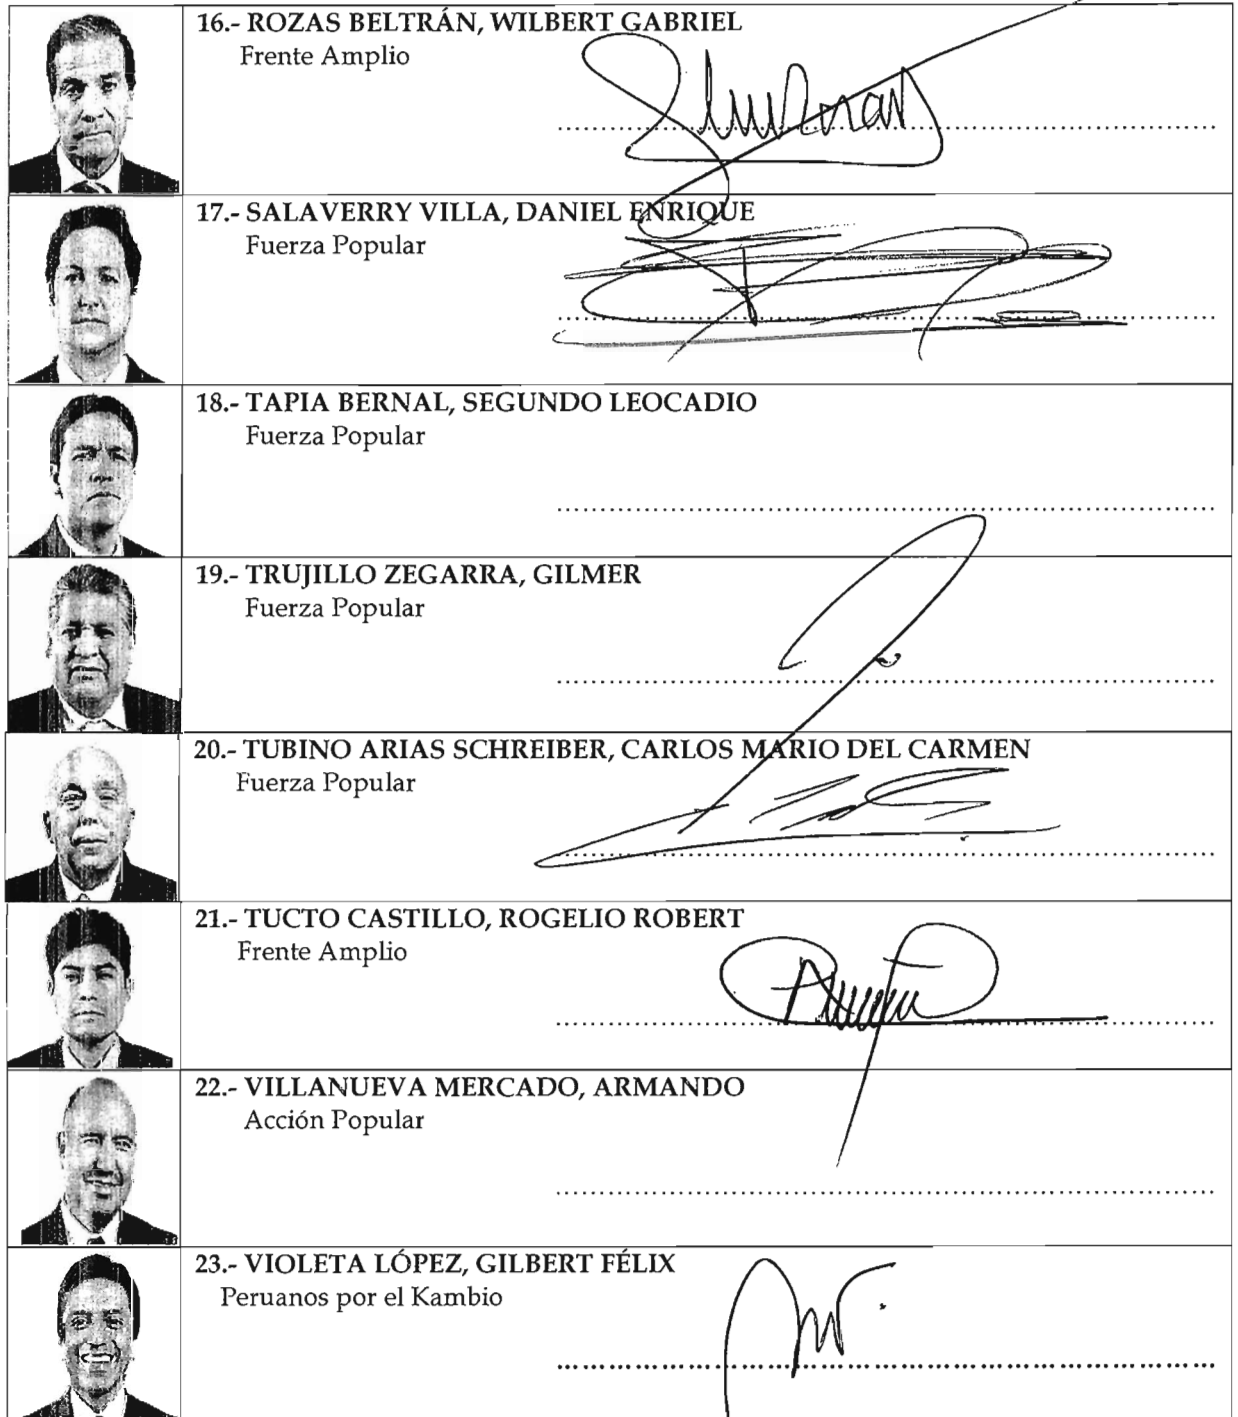 16.- ROZAS BELTRÁN, WILBERT GABRIEL
Frente Amplio
17.- SALAVERRY VILLA, DANIEL ENRIQUE
Fuerza Popular
18.- TAPIA BERNAL, SEGUNDO LEOCADIO
Fuerza Popular
19.- TRUJILLO ZEGARRA, GILMER
Fuerza Popular
20.- TUBINO ARIAS SCHREIBER, CARLOS MARIO DEL CARMEN
Fuerza Popular
21.- TUCTO CASTILLO, ROGELIO ROBERT
Frente Amplio
22.- VILLANUEVA MERCADO, ARMANDO
Acción Popular
23.- VIOLETA LÓPEZ, GILBERT FÉLIX
Peruanos por el Kambio